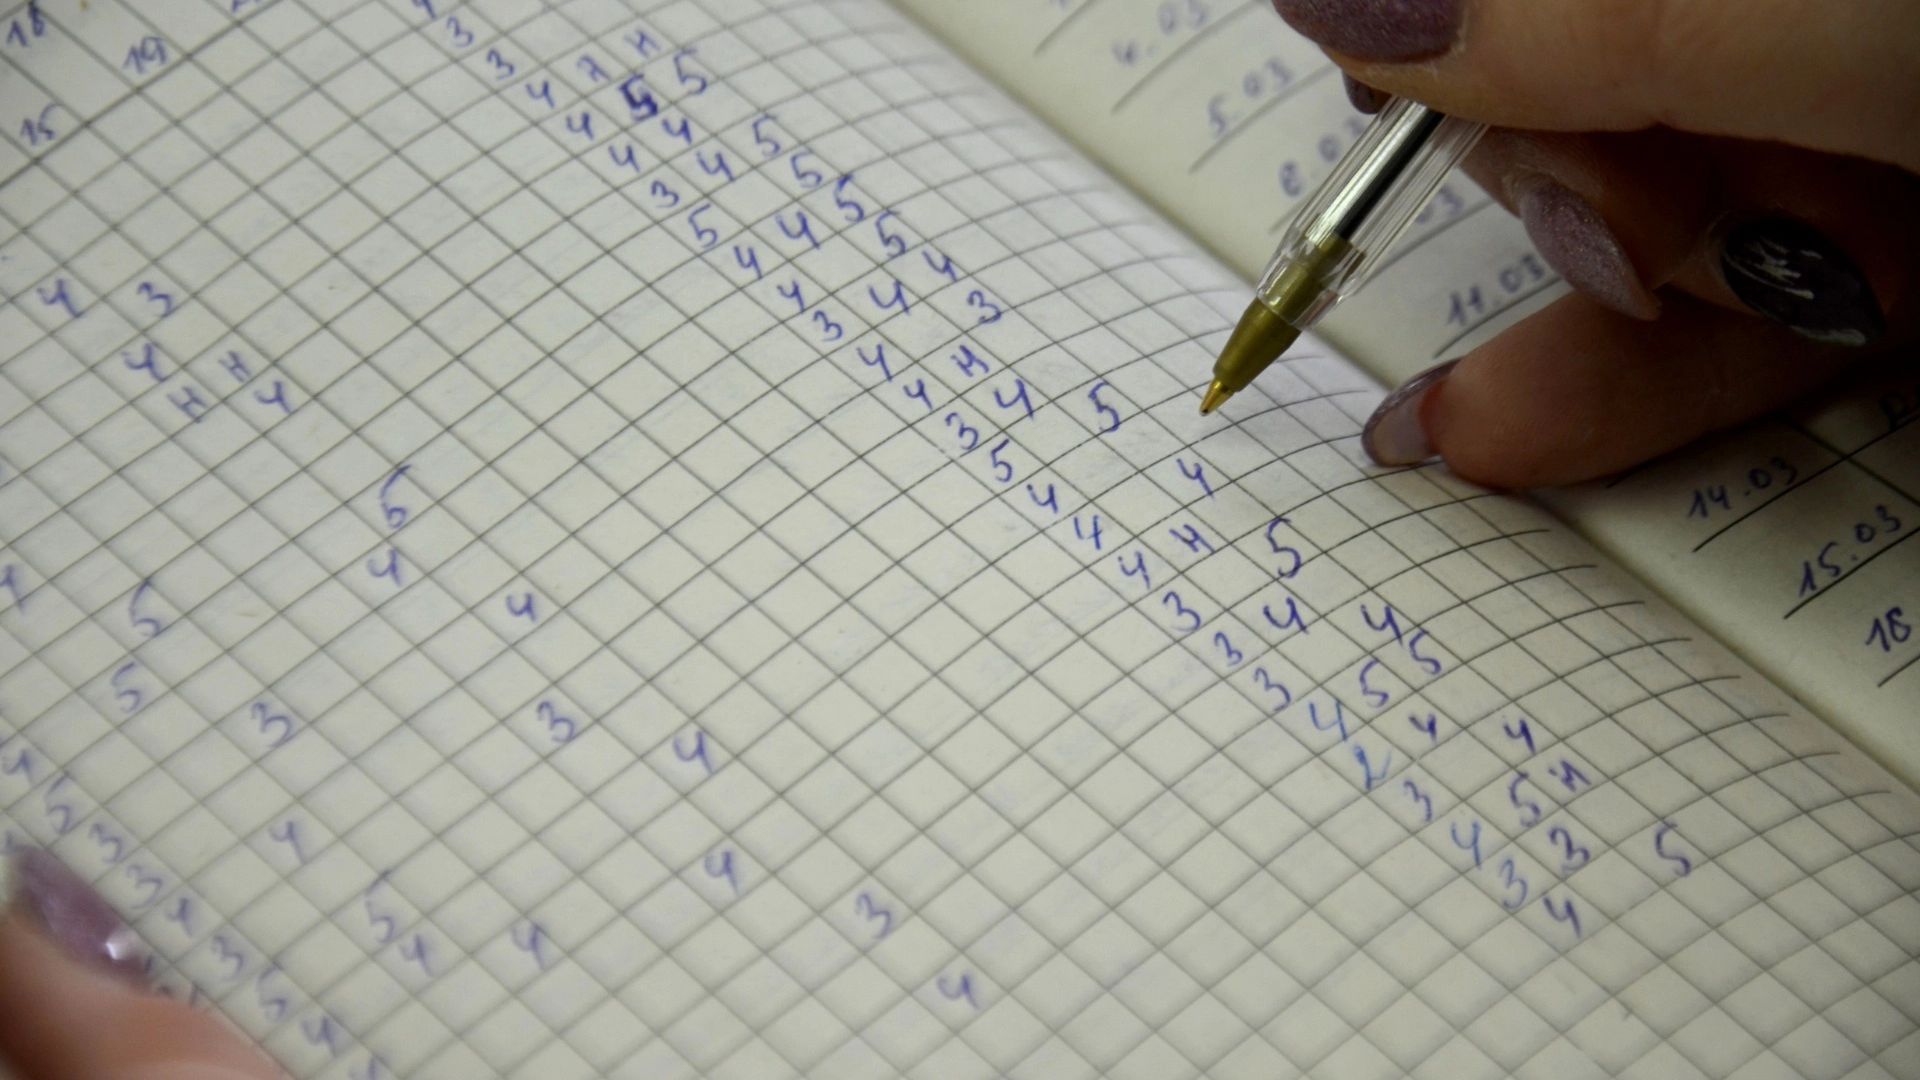 18 19
15
3
3
4 н н
4 5 5
4 4
3 4 5
5 5
4 4 5
4 5
3 4 4
4 3
4 н
3 4
5 5
4
4 4
4 н
3 5
3 4
3 4
4 5 5
2 4
3 4
4 5 н
3 3
4 5
4 3
4 н
н 4
5
4
5 4
5
3 3
4 4
5 4
4 4 3
4
5
3
3
4
3
5
4
4.03
5.03
03
11.03
14.03
15.03
18